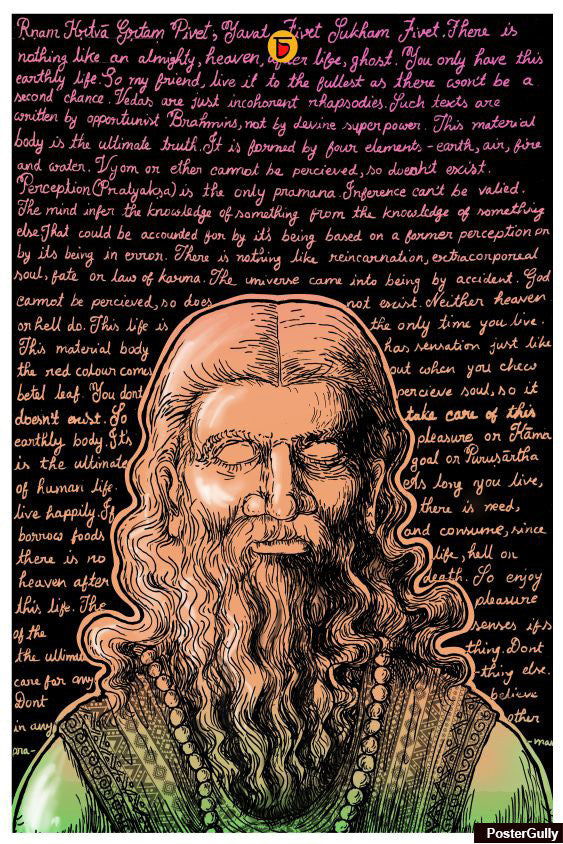 Rnam Kritvā Gritam Pivet, Yavat Jivet Sukham Jivet. There is
nothing like an almighty, heaven, after life, ghost. You only have this
earthly life. So my friend, live it to the fullest as there won't be a
second chance. Vedas are just incoherent rhapsodies. Such texts are
written by opportunist Brahmins, not by devine superpower. This material
body is the ultimate truth. It is formed by four elements - earth, air, fire
and water. Vyom or ether cannot be percieved, so doesn't exist.
Perception (Pratyakṣa) is the only pramana. Inference can't be valied.
The mind infer the knowledge of something from the knowledge of something
else. That could be accounted for by it's being based on a former perception or
by its being in error. There is nothing like reincarnation, extracorporeal
soul, fate or law of karma. The universe came into being by accident. God
cannot be percieved, so does not exist. Neither heaven
or hell do. This life is the only time you live.
This material body has sensation just like
the red colour comes out when you chew
betel leaf. You dont percieve soul, so it
doesn't exist. So take care of this
earthly body. Its pleasure or Kāma
is the ultimate goal or Puruṣārtha
of human life. As long you live,
live happily. If there is need,
borrow foods and consume, since
there is no life, hell or
heaven after death. So enjoy
this life. The pleasure
of the senses is
the ultimate thing. Dont
care for any thing else.
Dont believe
in any other
pra- -man
PosterGully